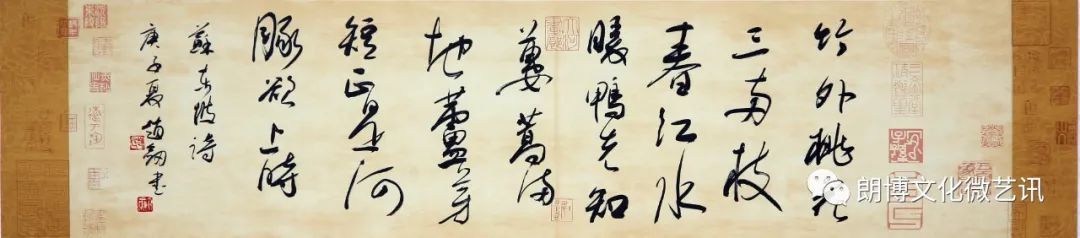 竹外桃花
三两枝
春江水
暖鸭先知
蒌蒿满
地芦芽
短正是河
豚欲上时
苏东坡诗
庚子夏赵翔书
朗博文化微艺讯